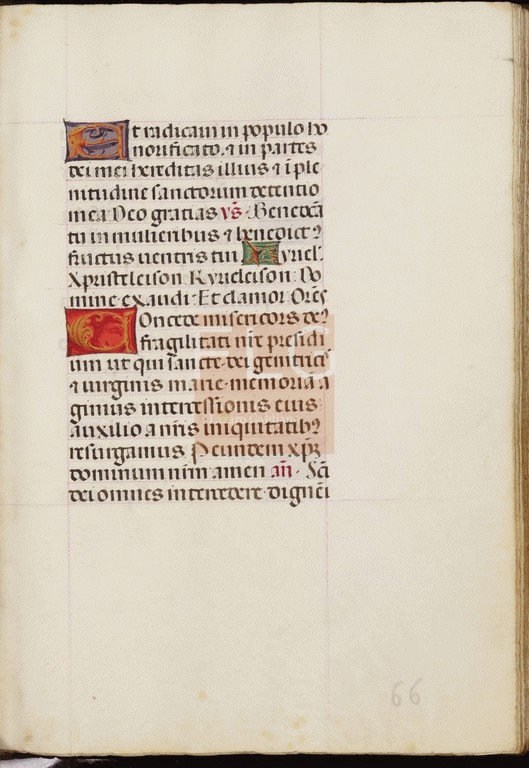 Et radicaui in populo ho
norificato. ⁊ in partes
dei mei hereditas illius ⁊ i̅ ple
nitudine sanctorum detentio
mea Deo gratias v̅s̅ Benedc̅a
tu in mulieribus ⁊ benedict⁹
fructus ventris tui Kyriel.
Xpristeleison. Kyrieleison. Do
mine exaudi. Et clamor. Ore̅s
Concede misericors de⁹
fragilitati nr̅e presidi
um ut qui sancte dei genitricis
⁊ uirginis marie memoria̅ a
gimus intercessionis eius
auxilio a nr̅is iniquitatib⁹
resurgamus Per eundem xp̅m̅
dominum nr̅m amen an̅. Sc̅i
dei omnes intercedere dignei̅
66